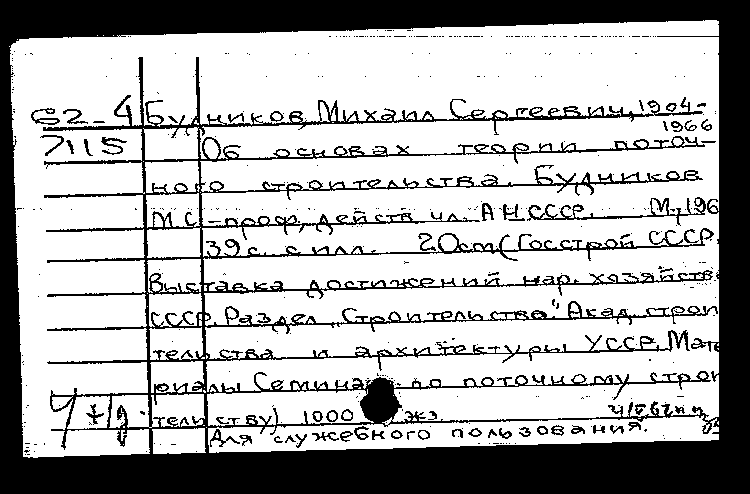 62-4 Будников, Михаил Сергеевич, 1904-
1966
7115 Об основах теории поточ-
ного строительства. Будников
М.С.-проф, действ чл. АН СССР. М., 196
39 с. с илл. 20 см (Госстрой СССР.
Выставка достижений нар. хозяйств
СССР. Раздел „Строительство." Акад. строи
тельства и архитектуры УССР. Мате
риалы Семина по поточному строи
тельству) 1000 экз
Для служебного пользования.